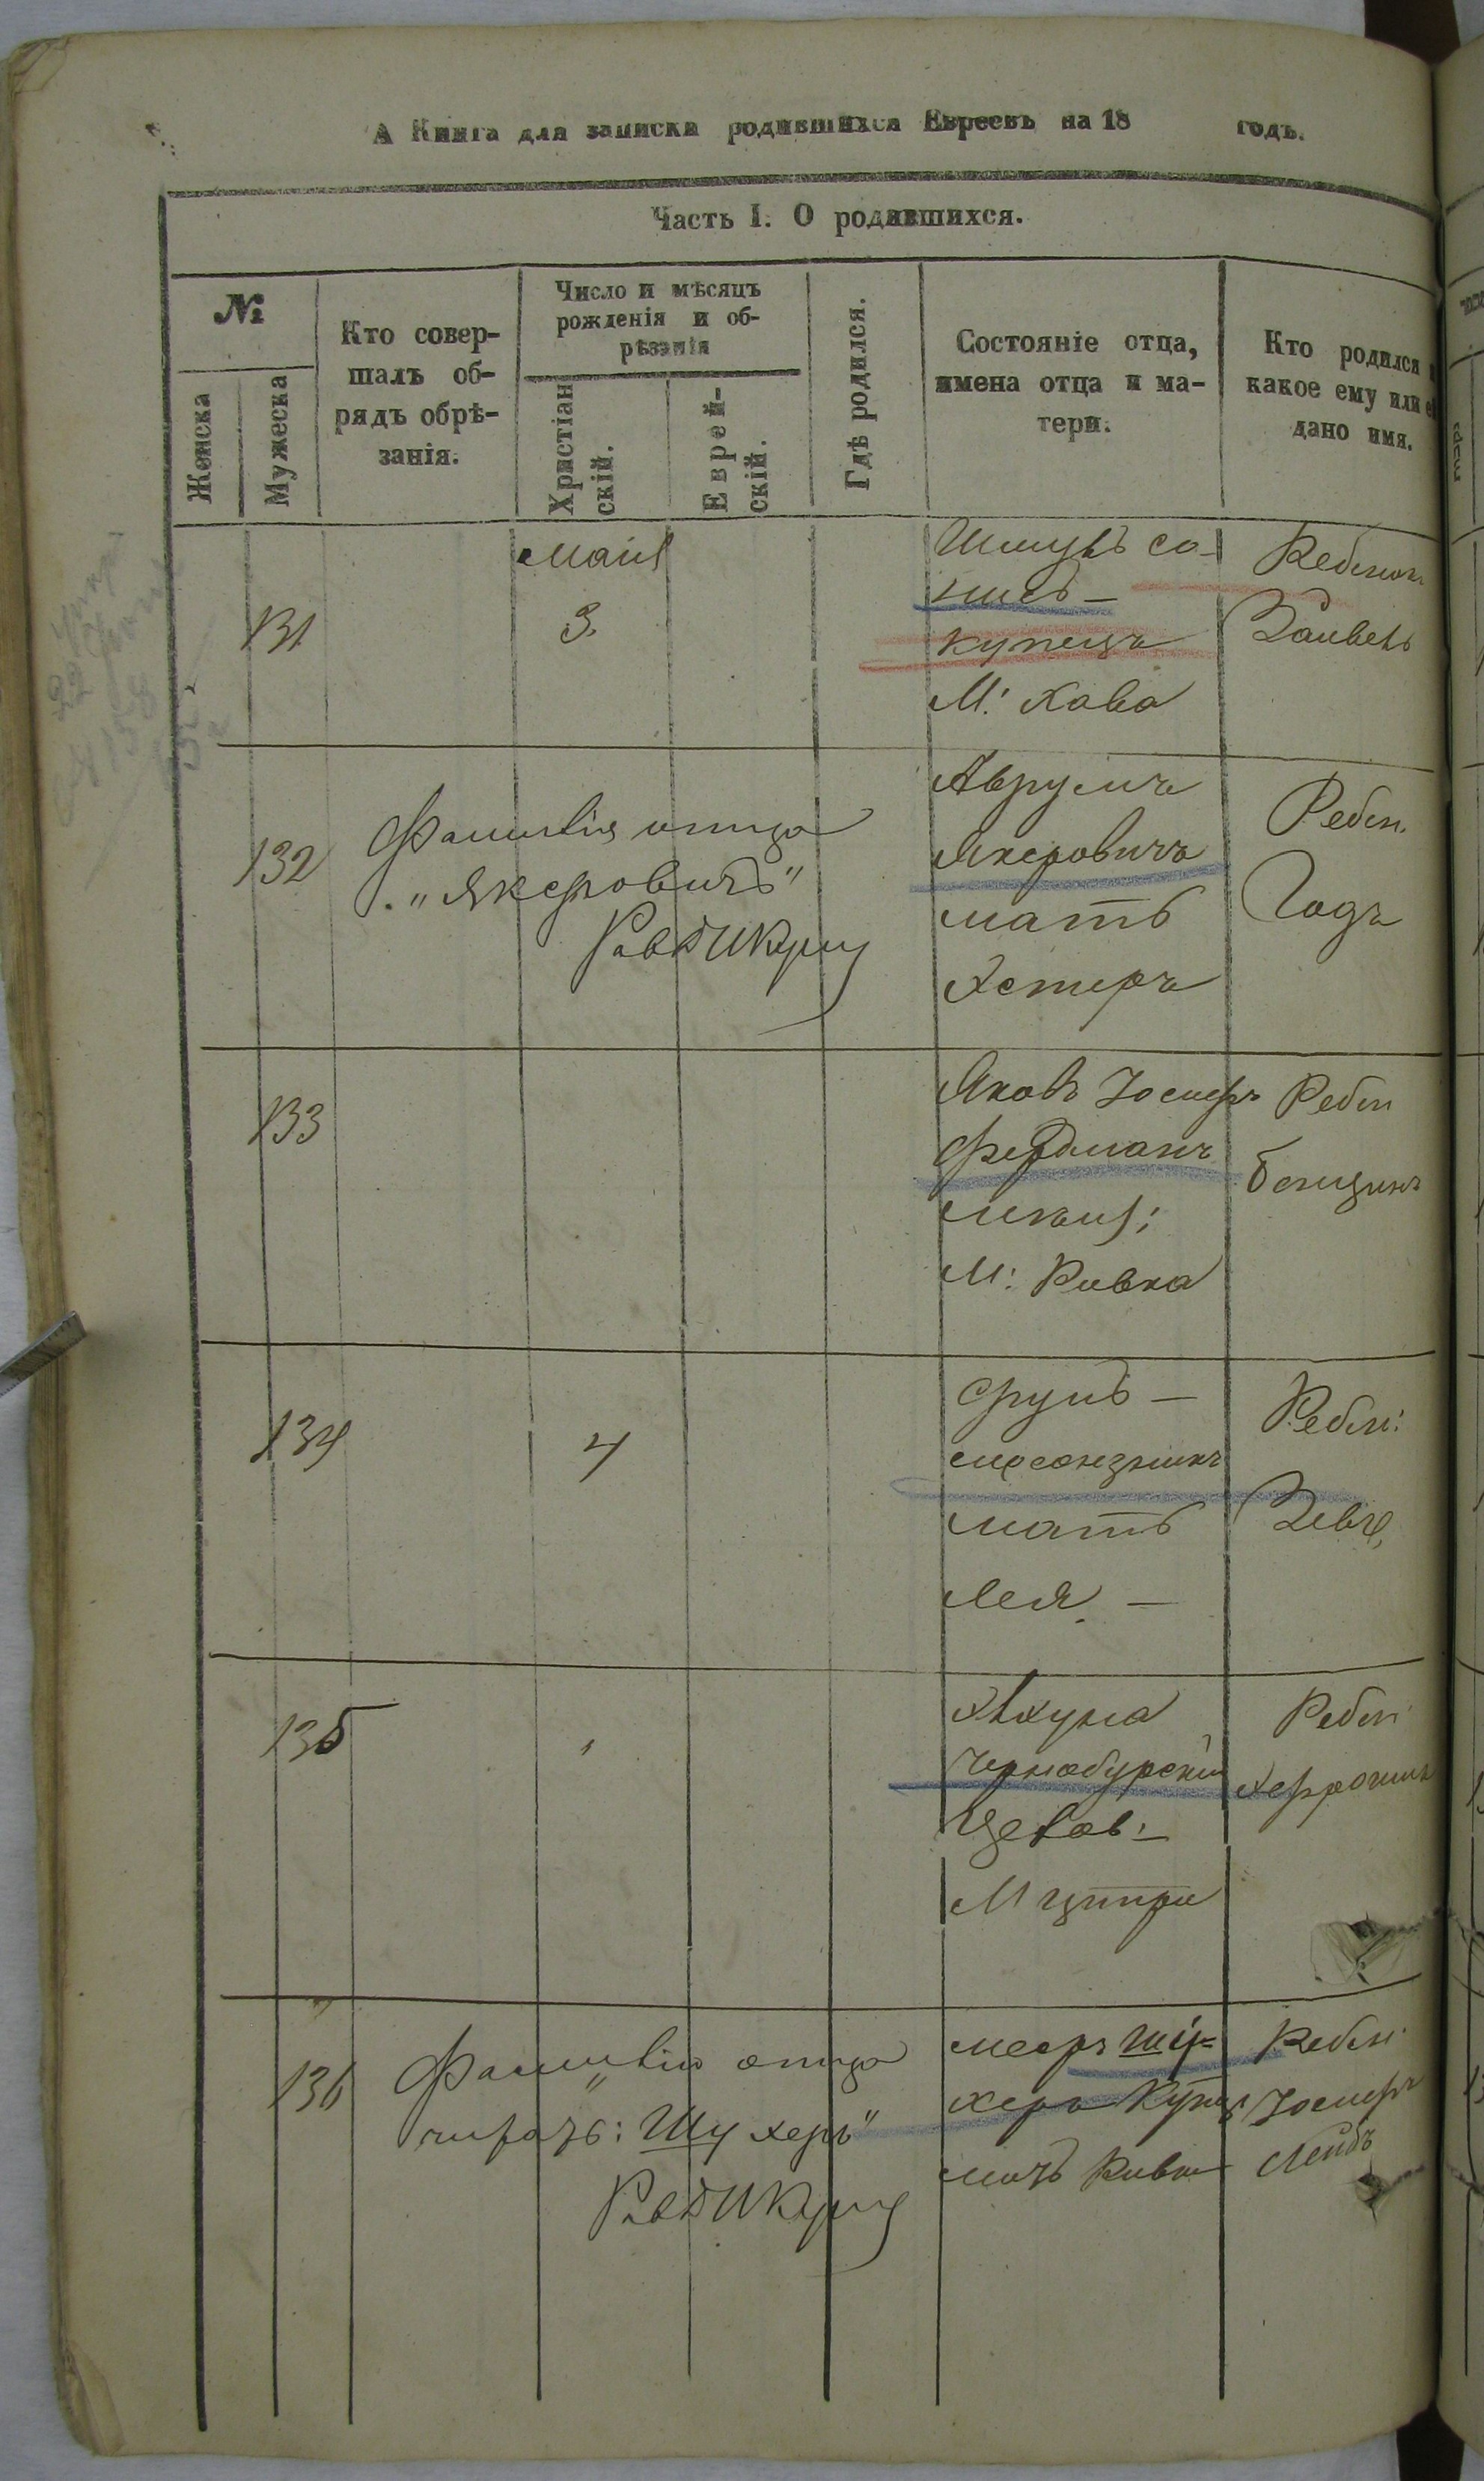 А Книга для записки родившихся Евреевъ на 18 годъ.
Часть I. О родившихся.
№
Женска
Мужеска
Кто совер-
шалъ об-
рядъ обрѣ-
занія.
Число и мѣсяцъ
рожденія и об-
рѣзанія
Христіан
скій.
Еврей-
скій.
Гдѣ родился.
Состояніе отца,
имена отца и ма-
тери.
Кто родился
какое ему или
дано имя.
131
Мая
3.
Шмуль
купецъ
М: Хава
Ребенок
Занвель
132
Фамилія отца
"Якеровичъ"
Аврумъ
Якеровичъ
мать
Хстеръ
Ребен.
Годъ
133
Яковъ Іосифъ
Фердманъ
М: Ривка
Ребен
Бенционъ
134
4
Сруль —
мать
Лея. —
Ребен:
135
Нахума
Чернобурскій
М
Ребен
136
Фамилія отца
читать: "Шухеръ"
Мееръ Шу-
херъ Купец
мать Ривка
Ребен
Іосифъ
Лейбъ